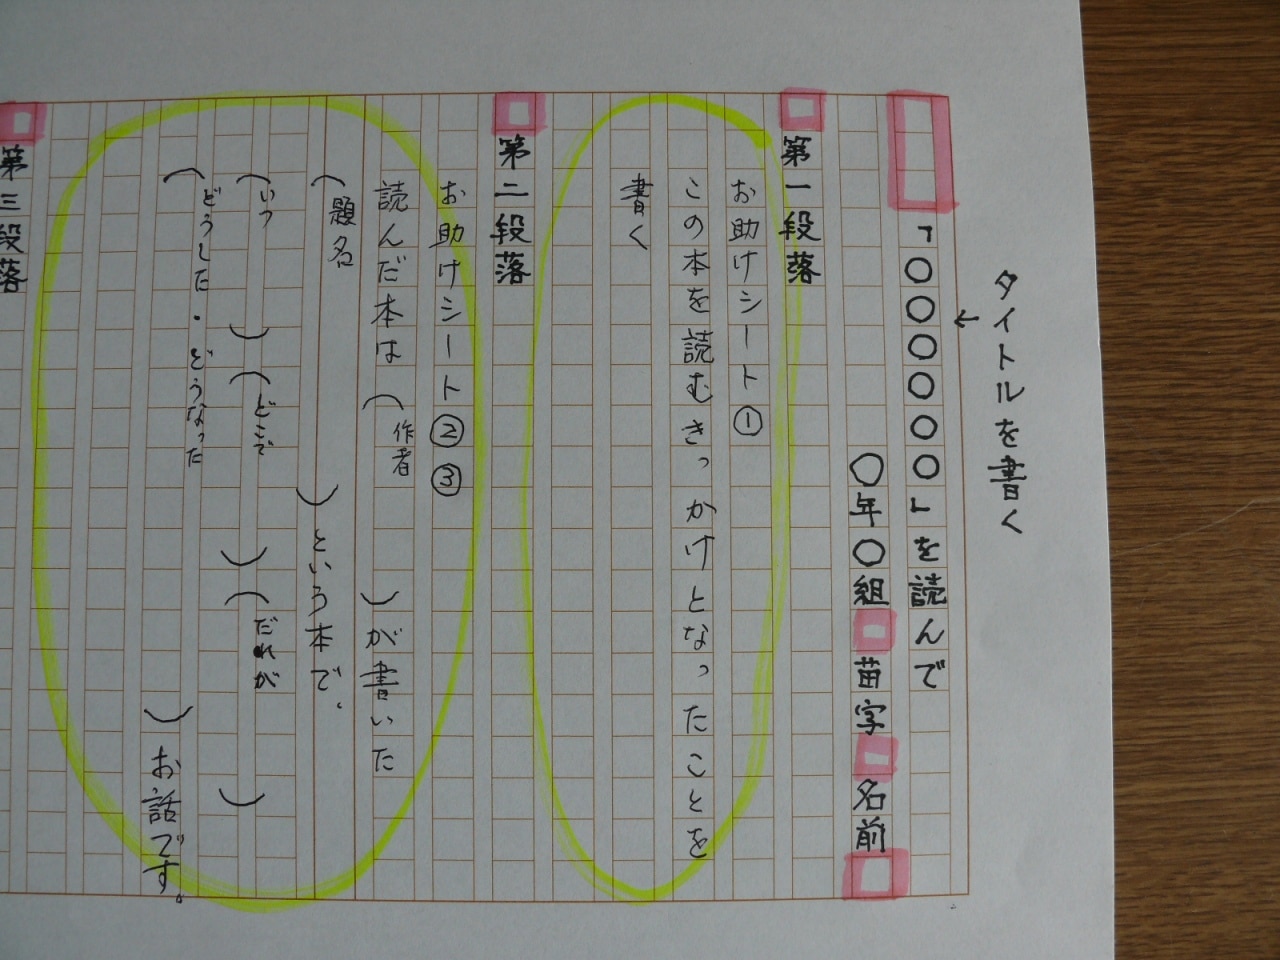 タイトルを書く
←
「〇〇〇〇〇〇」を読んで
〇年〇組 苗字 名前
第一段落
お助けシート①
この本を読むきっかけとなったことを
書く
第二段落
お助けシート②③
読んだ本は(作者)が書いた
(題名)という本で、
(いつ)(どこで)(だれが)
(どうした・どうなった)お話です。
第三段落